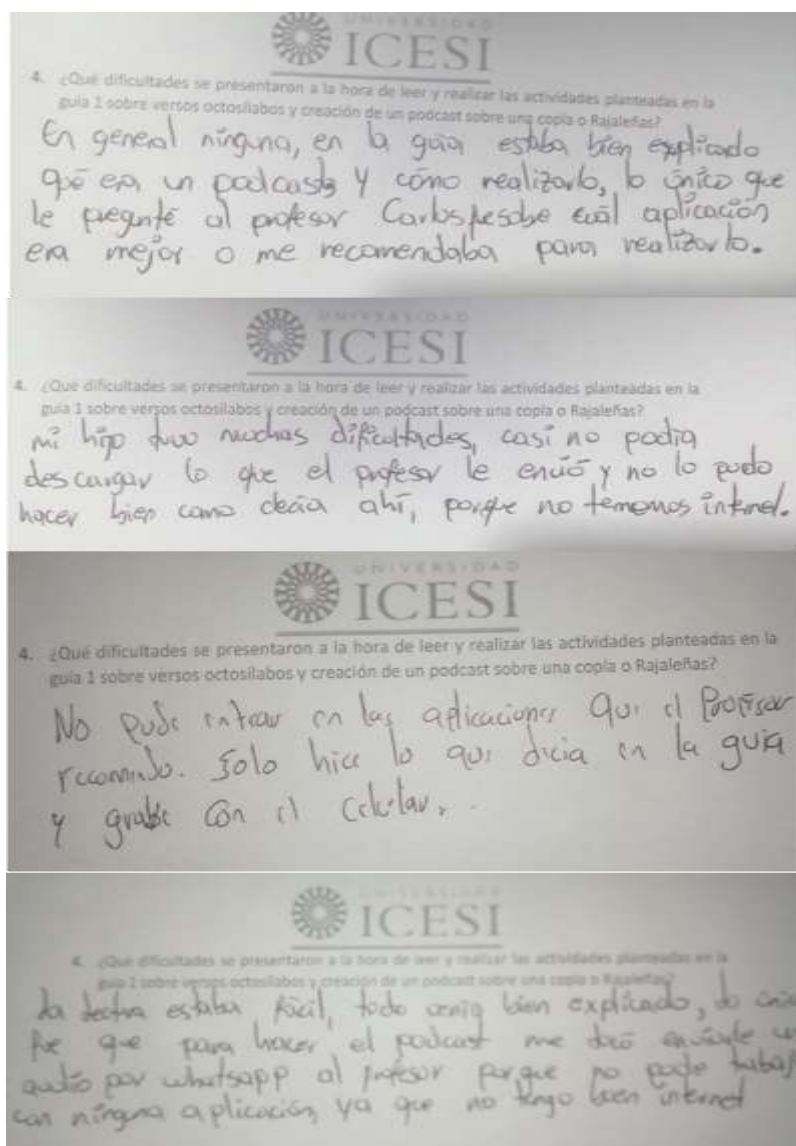 UNIVERSIDAD
ICESI
4. ¿Qué dificultades se presentaron a la hora de leer y realizar las actividades planteadas en la
guía 1 sobre versos octosílabos y creación de un podcast sobre una copla o Rajaleñas?
En general ninguna, en la guia estaba bien explicado
qué era un podcasts y cómo realizarlo, lo único que
le pregunté al profesor Carlos fue sobre cuál aplicación
era mejor o me recomendaba para realizarlo.
UNIVERSIDAD
ICESI
4. ¿Qué dificultades se presentaron a la hora de leer y realizar las actividades planteadas en la
guía 1 sobre versos octosílabos y creación de un podcast sobre una copla o Rajaleñas?
mi hijo tuvo muchas dificultades, casi no podia
descargar lo que el profesor le envió y no lo pudo
hacer bien como decia ahí, porque no tememos internet.
UNIVERSIDAD
ICESI
4. ¿Qué dificultades se presentaron a la hora de leer y realizar las actividades planteadas en la
guía 1 sobre versos octosílabos y creación de un podcast sobre una copla o Rajaleñas?
No pude entrar en las aplicaciones que el Profesor
recomendo. Solo hice lo que dicia en la guia
y grabe con el celular.
UNIVERSIDAD
ICESI
4. ¿Qué dificultades se presentaron a la hora de leer y realizar las actividades planteadas en la
guía 1 sobre versos octosílabos y creación de un podcast sobre una copla o Rajaleñas?
La lectura estaba fácil, todo venia bien explicado, lo
fue que para hacer el podcast me tocó enviarle
audio por whatsapp al profesor porque no pude
con ninguna aplicación, ya que no tengo buen internet